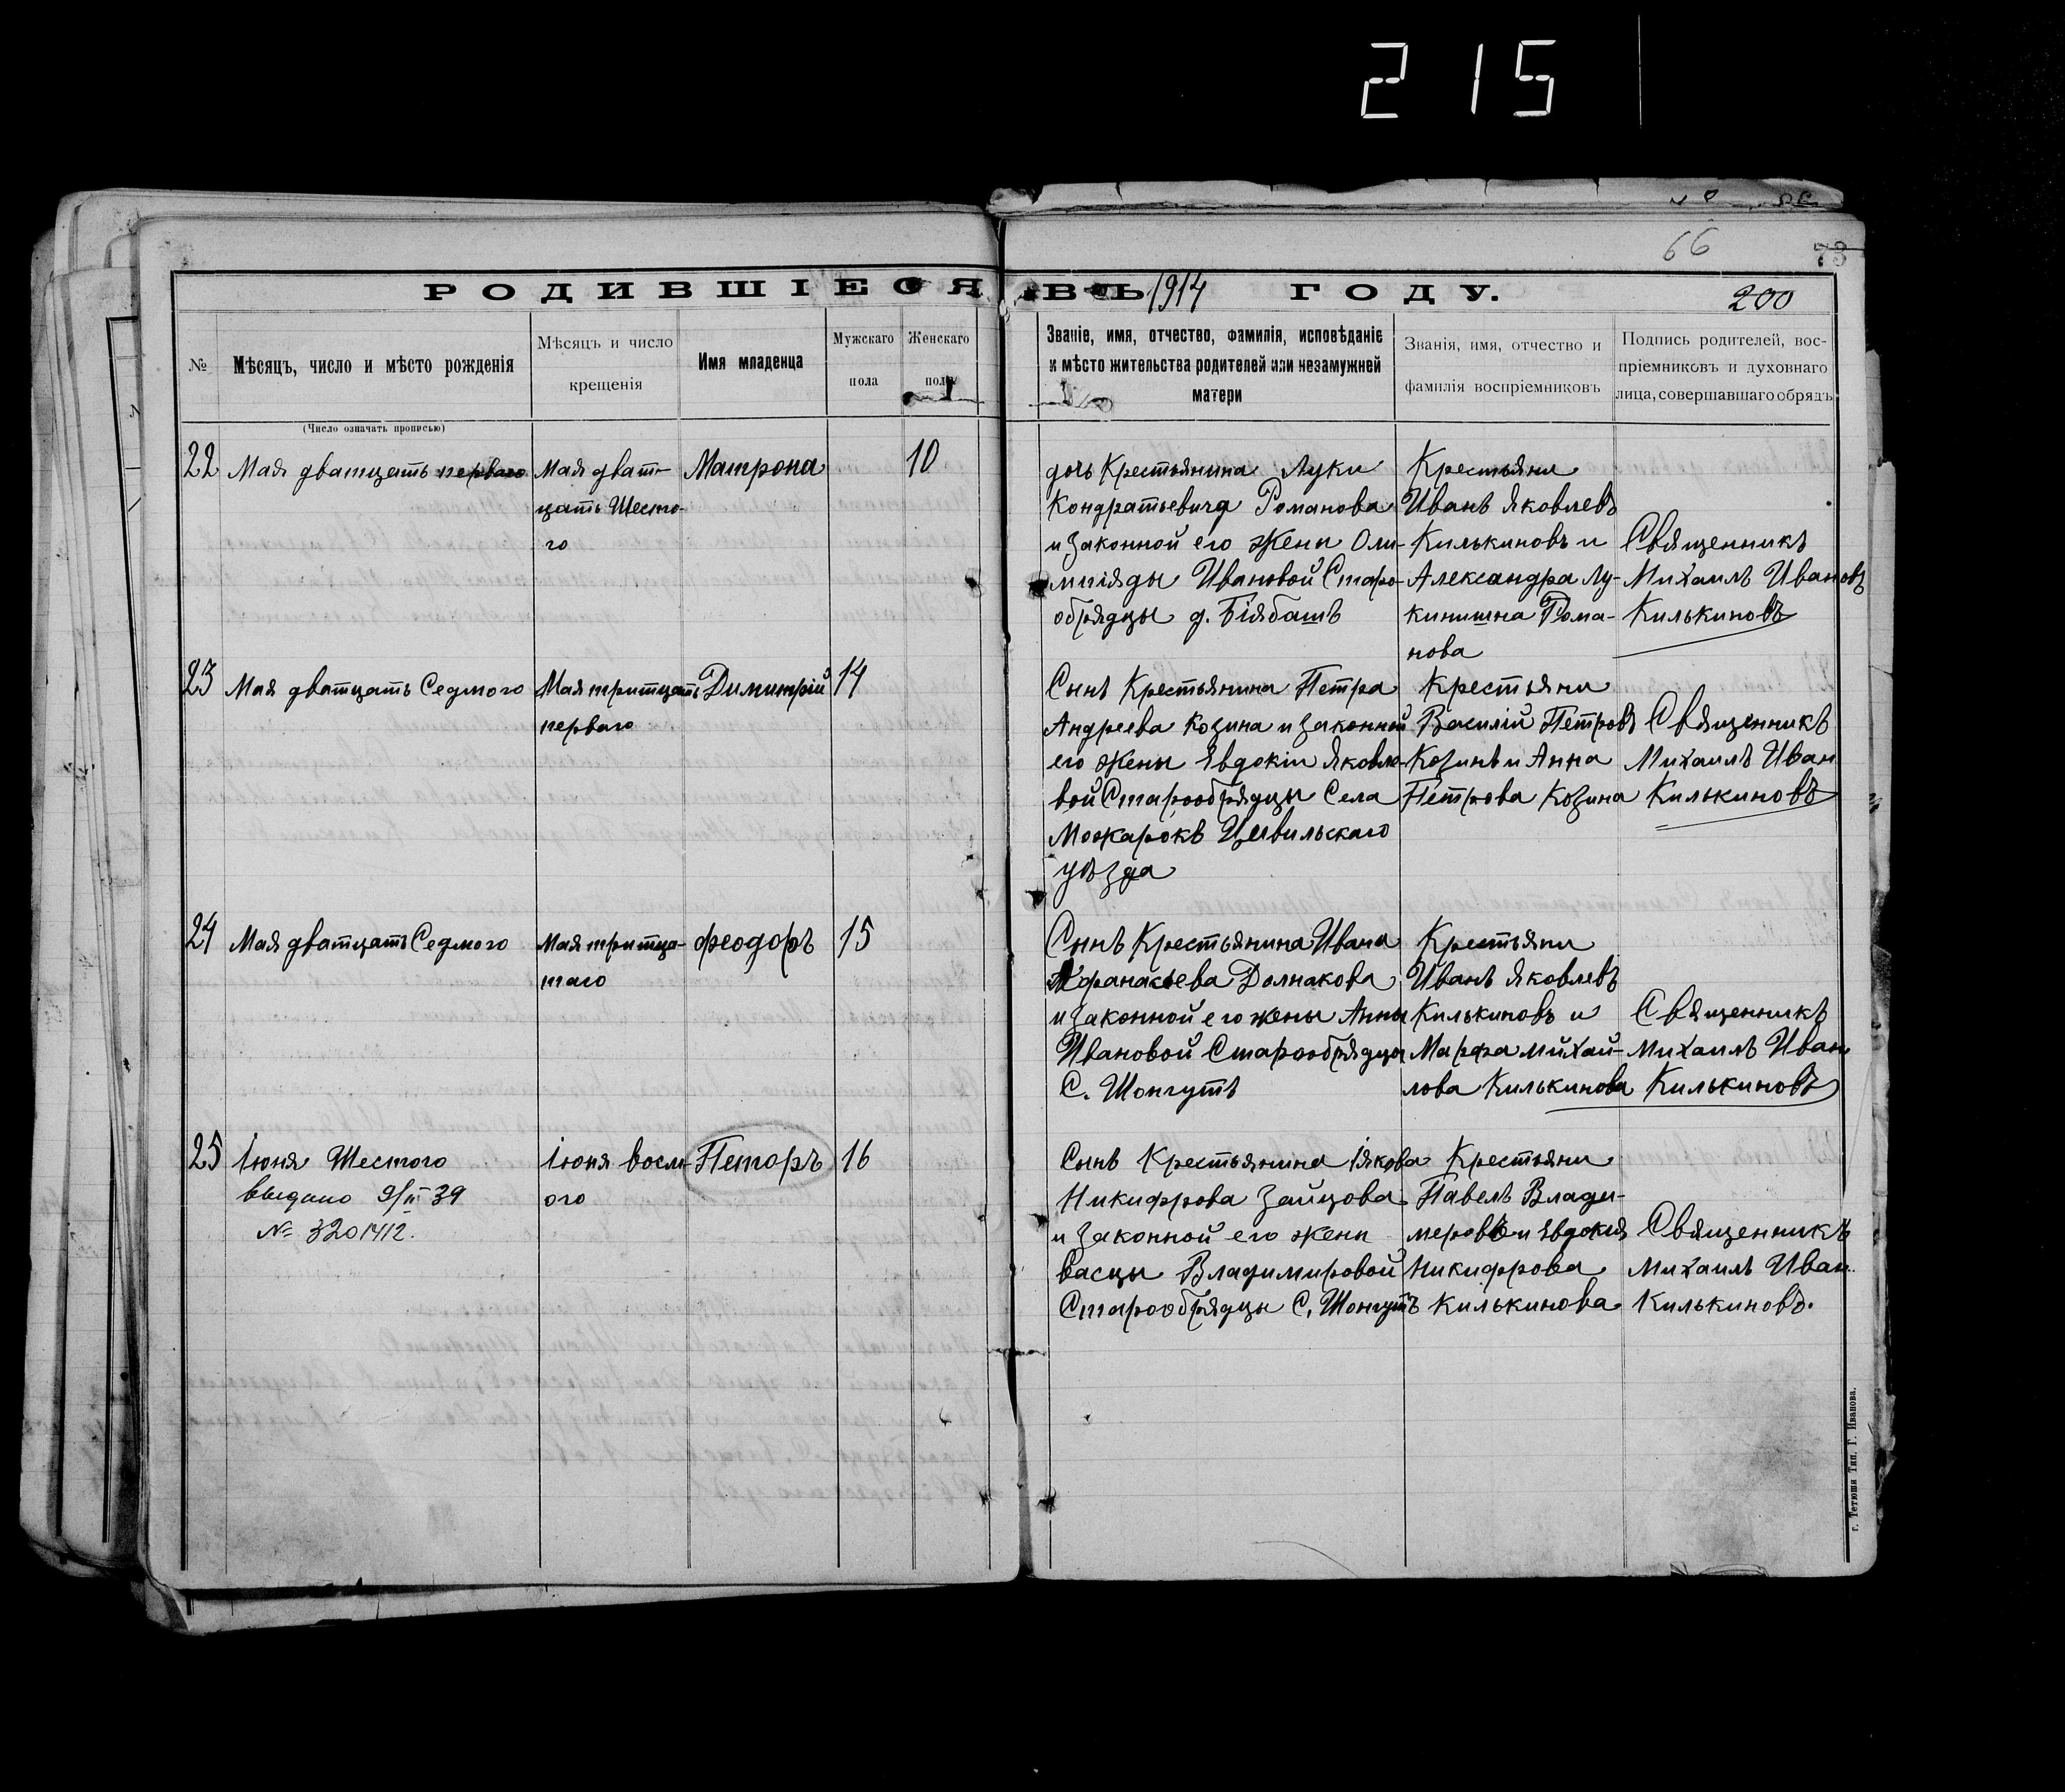 215
66
73
РОДИВШІЕСЯ ВЪ 1914 ГОДУ.
200
№
Мѣсяцъ, число и мѣсто рожденія
(Число означать прописью)
Мѣсяцъ и число
крещенія
Имя младенца
Мужскаго
пола
Женскаго
пола
Званіе, имя, отчество, фамилія, исповѣданіе
и мѣсто жительства родителей или незамужней
матери
Званія, имя, отчество и
фамилія воспріемниковъ
Подпись родителей, вос-
пріемниковъ и духовнаго
лица, совершавшаго обрядъ
22
Мая дватцать перваго
Мая дват-
цать Шесто-
го
Матрона
10
дочь Крестьянина Луки
Кондратьевича Романова
и Законной его Жены Оли-
мпіяды Ивановой Старо-
обрядцы д. Біябашъ
Крестьяни
Иванъ Яковлевъ
Килькиновъ и
Александра Лу-
кинишна Рома-
нова
Священникъ
Михаилъ Ивановъ
Килькиновъ
23
Мая дватцать Седмого
Мая тритцать
перваго
Димитрій
14
Сынъ Крестьянина Петра
Андреева Козина и Законной
его Жены Евдокіи Яковле-
вой Старообрядцы Села
Можарокъ Цивильскаго
уѣзда
Крестьяни
Василій Петровъ
Козинъ и Анна
Петрова Козина
Священникъ
Михаилъ Иван
Килькиновъ
24
Мая дватцать Седмого
Мая тритца-
таго
Феодоръ
15
Сынъ Крестьянина Ивана
Афанасьева Долнакова
и Законной его жены Анны
Ивановой Старообрядцы
С. Шонгутъ
Крестьяни
Иванъ Яковлевъ
Килькиновъ и
Марфа Михай-
лова Килькинова
Священникъ
Михаилъ Иван
Килькиновъ
25
Іюня Шестого
выдано 9/III 39
№ 3201412.
Іюня восм
ого
Петоръ
16
Сынъ Крестьянина Іякова
Никифрова Зайцова
и Законной его жени
васцы Владимировой
Старообрядцы С. Шонгутъ
Крестьяни
Павелъ Влади-
меровъ и Евдокия
Никифрова
Килькинова
Священникъ
Михаилъ Иван.
Килькиновъ.
г. Тетюши Тип. Г. Иванова.